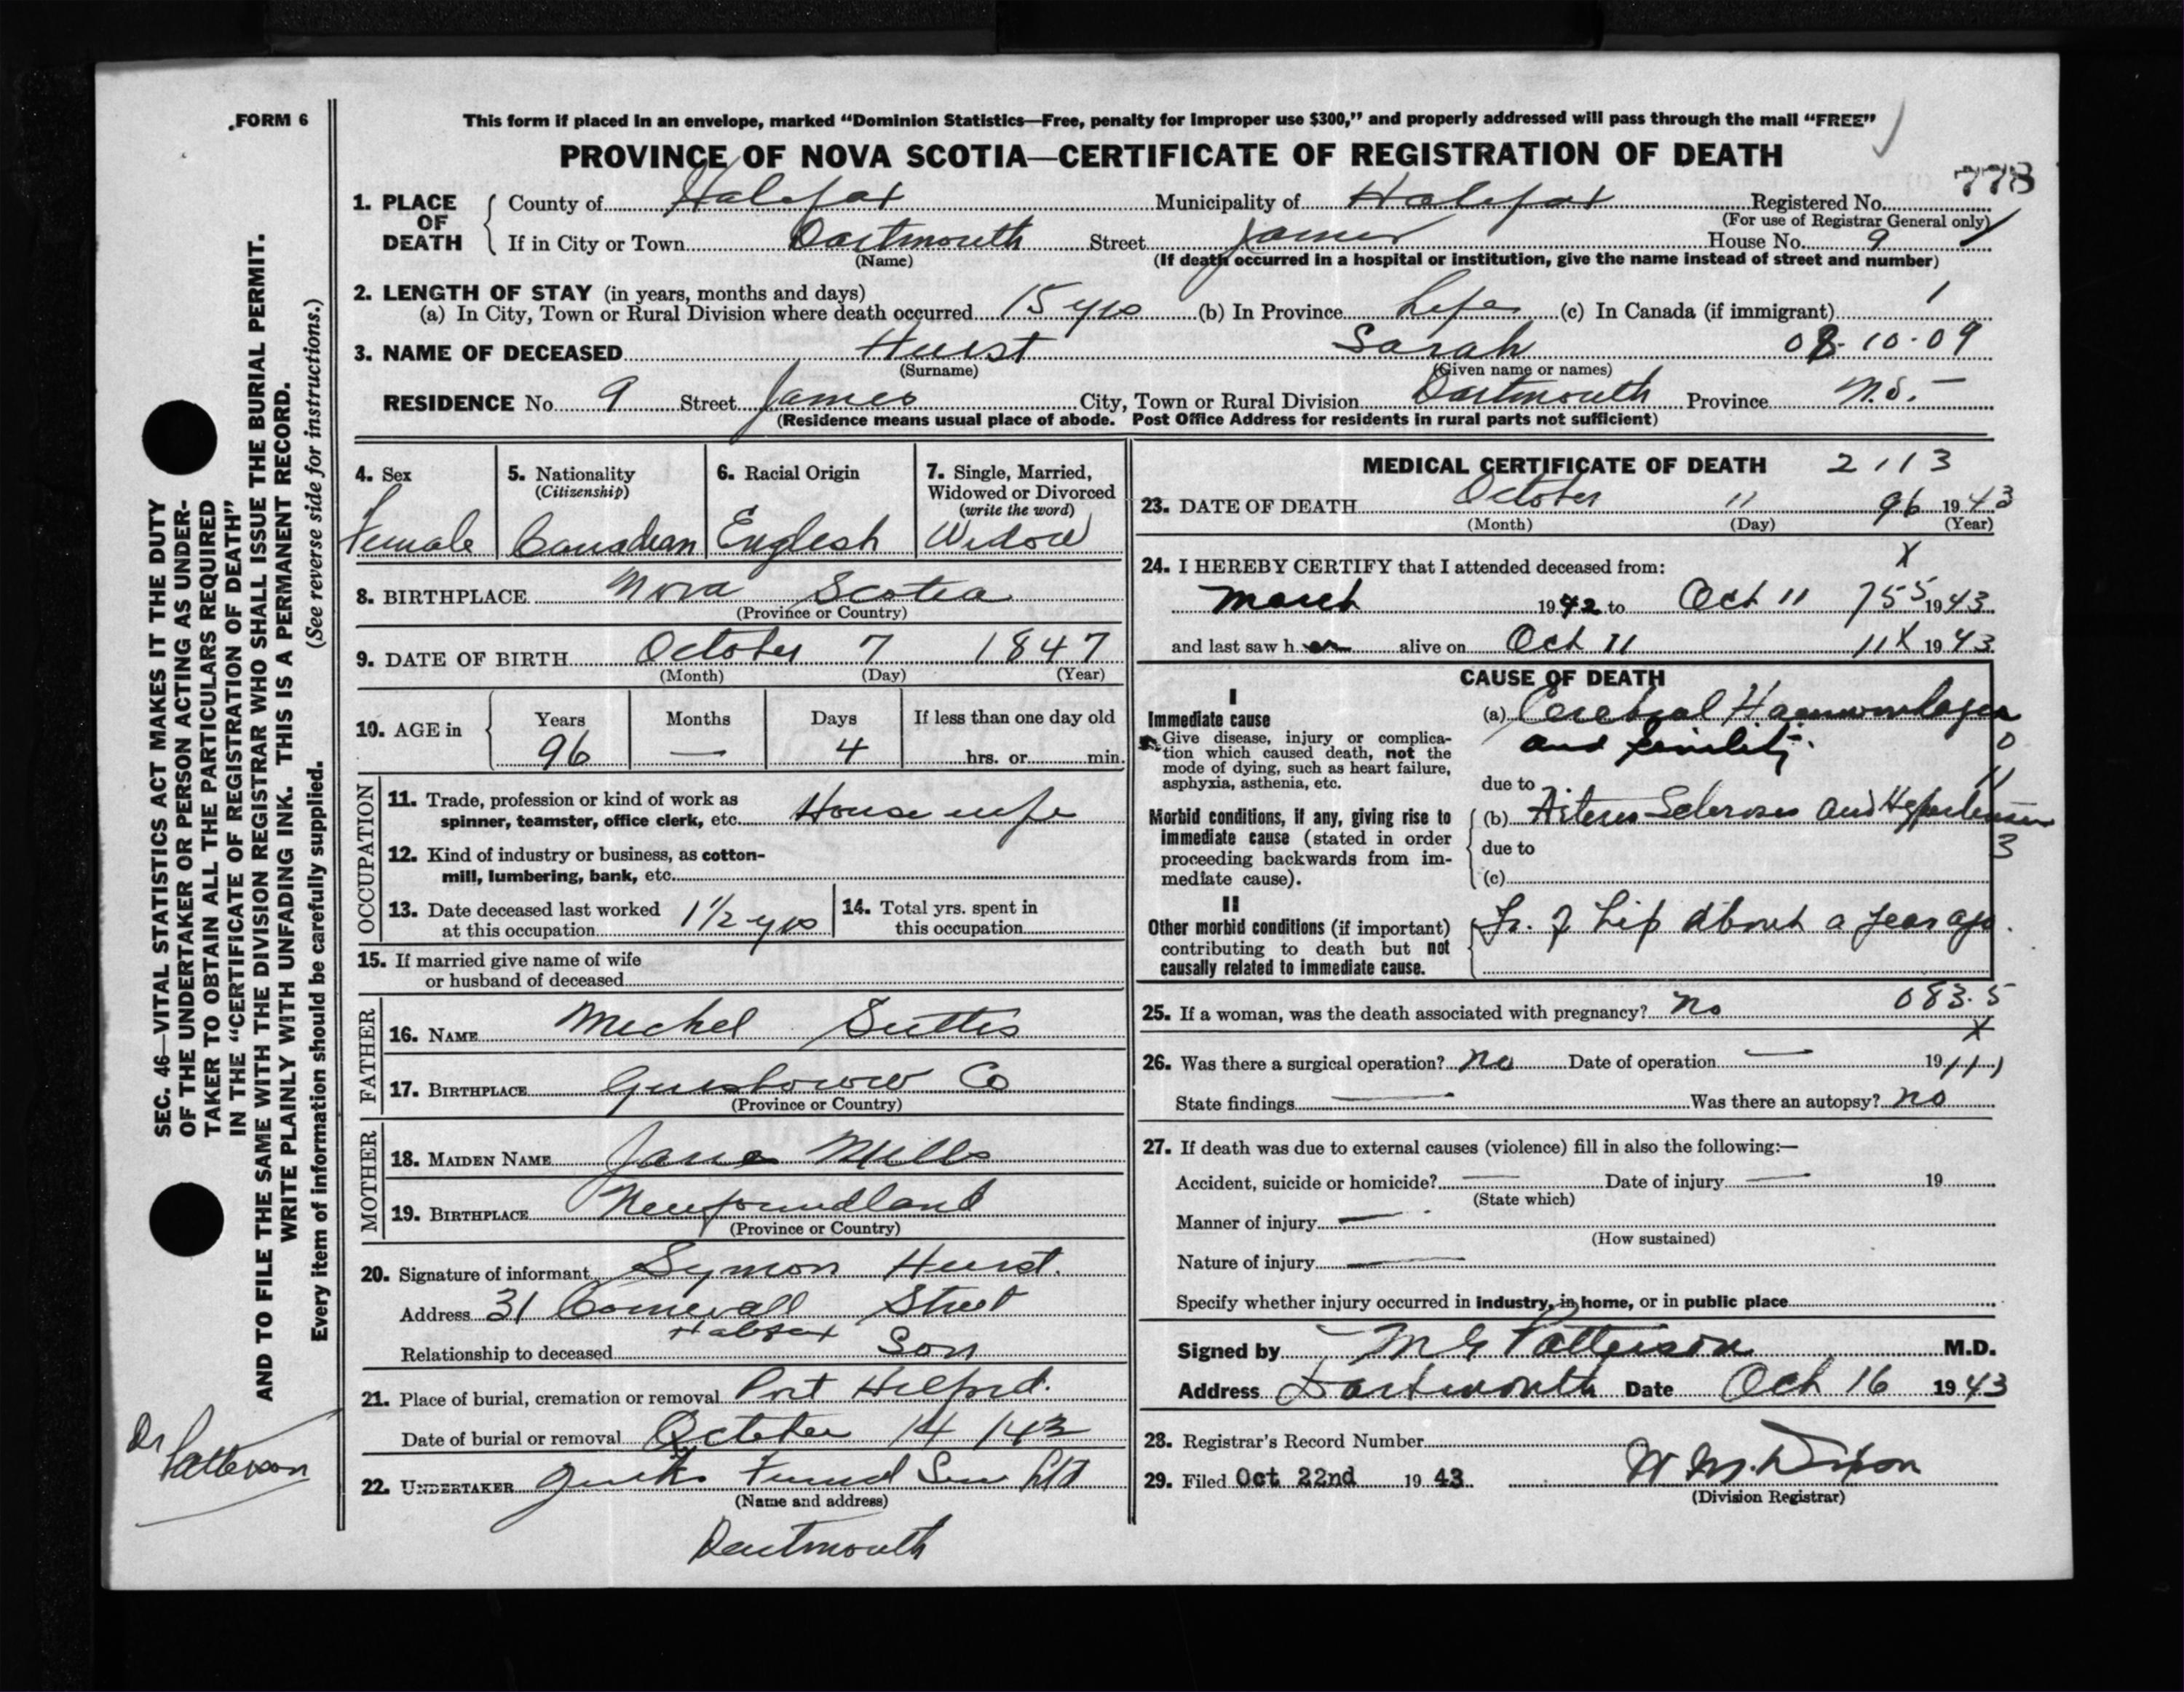 .FORM 6
This form if placed in an envelope, marked "Dominion Statistics—Free, penalty for improper use $300," and properly addressed will pass through the mail "FREE"
PROVINCE OF NOVA SCOTIA—CERTIFICATE OF REGISTRATION OF DEATH
778
1. PLACE OF DEATH
County of Halifax Municipality of Halifax Registered No.
(For use of Registrar General only)
If in City or Town Dartmouth Street James House No. 9
(Name) (If death occurred in a hospital or institution, give the name instead of street and number)
2. LENGTH OF STAY (in years, months and days)
(a) In City, Town or Rural Division where death occurred 15 yrs (b) In Province Life (c) In Canada (if immigrant)
3. NAME OF DECEASED Hurst Sarah 08-10-09
(Surname) (Given name or names)
RESIDENCE No. 9 Street James City, Town or Rural Division Dartmouth Province N.S.
(Residence means usual place of abode. Post Office Address for residents in rural parts not sufficient)
4. Sex
Female
5. Nationality
(Citizenship)
Canadian
6. Racial Origin
English
7. Single, Married,
Widowed or Divorced
(write the word)
Widow
8. BIRTHPLACE Nova Scotia
(Province or Country)
9. DATE OF BIRTH October 7 1847
(Month) (Day) (Year)
10. AGE in
Years Months Days If less than one day old
96 — 4 hrs. or min.
OCCUPATION
11. Trade, profession or kind of work as
spinner, teamster, office clerk, etc. House wife
12. Kind of industry or business, as cotton-
mill, lumbering, bank, etc.
13. Date deceased last worked
at this occupation 1 1/2 yrs
14. Total yrs. spent in
this occupation
15. If married give name of wife
or husband of deceased
FATHER
16. NAME Michel Suttis
17. BIRTHPLACE Guysborow Co
(Province or Country)
MOTHER
18. MAIDEN NAME Jane Mills
19. BIRTHPLACE Newfoundland
(Province or Country)
20. Signature of informant Symon Hurst.
Address 31 Cornwall Street
Halifax
Relationship to deceased Son
21. Place of burial, cremation or removal Port Hilford.
Date of burial or removal October 14 / 43
22. UNDERTAKER Funeral Ser Ltd
(Name and address)
Dartmouth
MEDICAL CERTIFICATE OF DEATH 2113
23. DATE OF DEATH October 11 96 1943
(Month) (Day) (Year)
24. I HEREBY CERTIFY that I attended deceased from: X
March 1942 to Oct 11 755 1943
and last saw her alive on Oct 11 11X 1943
CAUSE OF DEATH
I
Immediate cause
Give disease, injury or complica-
tion which caused death, not the
mode of dying, such as heart failure,
asphyxia, asthenia, etc.
(a) Cerebral Haemorrhage
and senility.
0
due to 11
Morbid conditions, if any, giving rise to
immediate cause (stated in order
proceeding backwards from im-
mediate cause).
(b) Arterio Sclerosis and Hypertension
due to 3
(c)
II
Other morbid conditions (if important)
contributing to death but not
causally related to immediate cause.
Fr. of hip about a year ago.
083.5
25. If a woman, was the death associated with pregnancy? No
X
26. Was there a surgical operation? no Date of operation — 19
State findings — Was there an autopsy? no
27. If death was due to external causes (violence) fill in also the following:—
Accident, suicide or homicide? — Date of injury — 19
(State which)
Manner of injury —
(How sustained)
Nature of injury —
Specify whether injury occurred in industry, in home, or in public place
Signed by M G Patterson M.D.
Address Dartmouth Date Oct 16 1943
28. Registrar's Record Number
29. Filed Oct 22nd 1943 W. M. Dixon
(Division Registrar)
SEC. 46—VITAL STATISTICS ACT MAKES IT THE DUTY
OF THE UNDERTAKER OR PERSON ACTING AS UNDER-
TAKER TO OBTAIN ALL THE PARTICULARS REQUIRED
IN THE "CERTIFICATE OF REGISTRATION OF DEATH"
AND TO FILE THE SAME WITH THE DIVISION REGISTRAR WHO SHALL ISSUE THE BURIAL PERMIT.
WRITE PLAINLY WITH UNFADING INK. THIS IS A PERMANENT RECORD.
Every item of information should be carefully supplied. (See reverse side for instructions.)
Dr Patterson